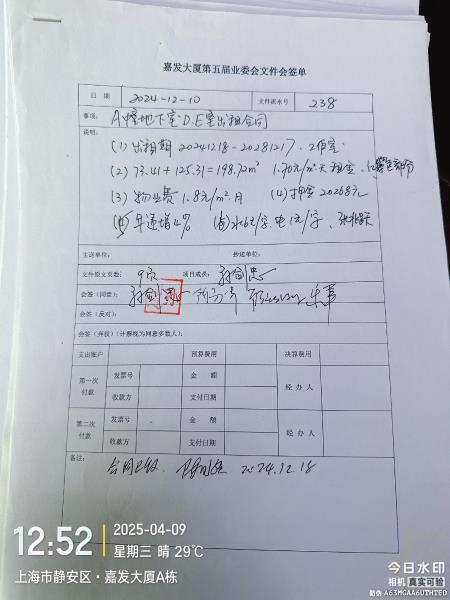 嘉发大厦第五届业委会文件会签单
日 期 2024-12-10 文件流水号 238
事项: A幢地下室D.E室出租合同
说明:
(1) 出租期 20241218-20281217.
(2) 73.41+125.31=198.72m² 1.70元/m².天 部分
(3) 物业费 1.8元/m².月 (4) 押金 20268元
年递增4% 水6元/字 电1元/字
主送单位: 抄送单位:
文件原文页数: 9页 项目成员:
会签(同意):
会签(反对):
会签(弃权)(计票视为同意多数人):
支出账户 预算费用 决算费用
第一次付款 发票号 金 额 经 办 人
收款方 支付日期
第二次付款 发票号 金 额 经 办 人
收款方 支付日期
备注: 合同已收 2024.12.18
12:52 2025-04-09
星期三 晴 29℃
上海市静安区·嘉发大厦A栋
今日水印
相机 真实可验
防伪 A63MGAA6UTHTED